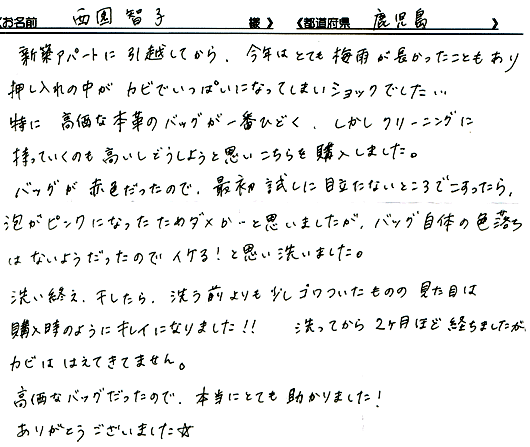 《お名前 西園 智子 様》 《都道府県 鹿児島 》
新築アパートに引越してから、今年はとても梅雨が長かったこともあり
押し入れの中がカビでいっぱいになってしまいショックでした…
特に 高価な本革のバッグが一番ひどく、しかしクリーニングに
持っていくのも高いしどうしようと思いこちらを購入しました。
バッグが赤色だったので、最初試しに目立たないところでこすったら、
泡がピンクになったためダメか…と思いましたが、バッグ自体の色落ち
はないようだったのでイケる!と思い洗いました。
洗い終え、干したら、洗う前よりも少しゴワついたものの見た目は
購入時のようにキレイになりました!! 洗ってから2ヶ月ほど経ちましたが、
カビははえてきてません。
高価なバッグだったので、本当にとても助かりました!
ありがとうございました☆